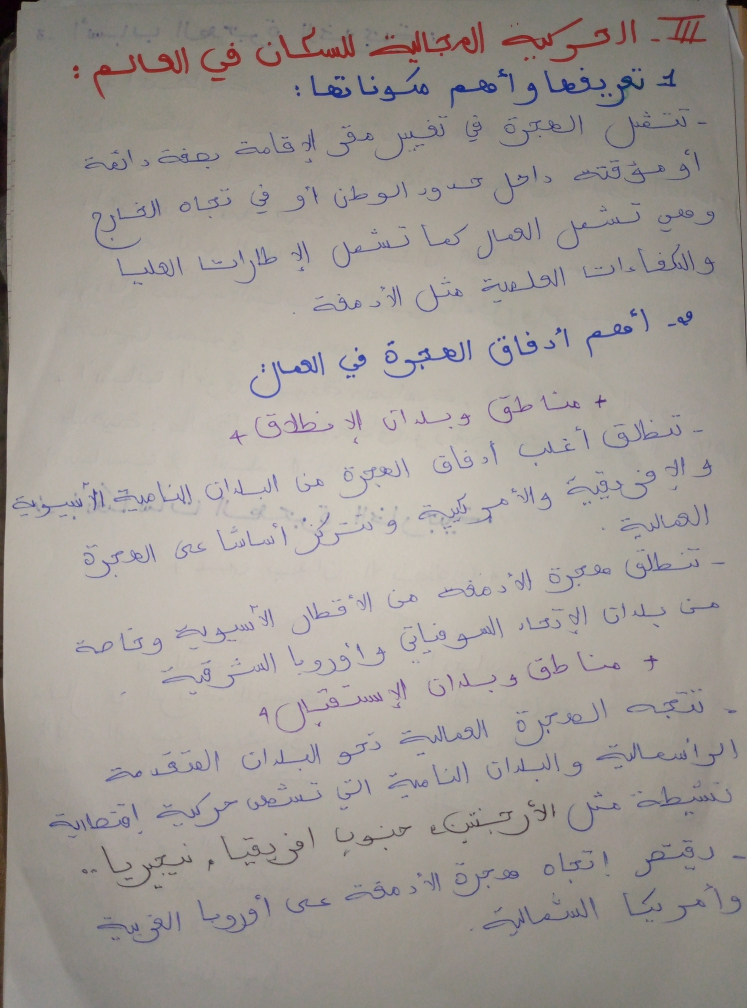 III - الحركية المجالية للسكان في العالم :
1 تعريفها وأهم مكوناتها :
- تتمثل الهجرة في تغيير مقر الإقامة بصفة دائمة
أو مؤقتة داخل حدود الوطن أو في تجاه الخارج
وهي تشمل العمال كما تشمل الإطارات العليا
والكفاءات العلمية مثل الأدمغة .
- أهم أدفاق الهجرة في العمال
+ مناطق وبلدان الإنطلاق +
- تنطلق أغلب أدفاق الهجرة من البلدان النامية الأسيوية
والإفريقية والأمريكيية وتتركز أساسا على الهجرة
العمالية .
- تنطلق هجرة الأدمغة من الأقطار الآسيوية وخاصة
من بلدان الإتحاد السوفياتي وأوروبا الشرقية .
+ مناطق وبلدان الإستقبال +
- تتجه الهجرة العمالية نحو البلدان المتقدمة
الرأسمالية والبلدان النامية التي تشهد حركية إقتصادية
نشيطة مثل الأرجنتين، جنوب افريقيا، نيجيريا ..
- يقتصر إتجاه هجرة الأدمغة على أوروبا الغربية
وأمريكا الشمالية .